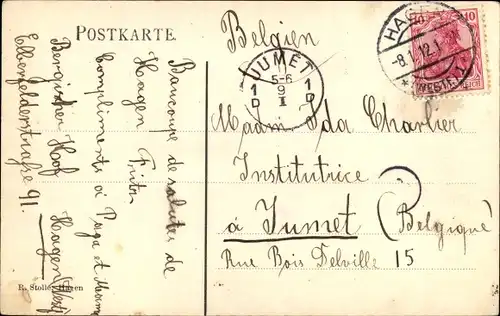 POSTKARTE.
Belgien
HAGEN
-8.1.12.
* (WESTF.)
10 10
REICH
JUMET
5-6
1 9 1
D I D
Baucoupe de salutes de
Hagen Fritz
Compliments à Papa et Mama
Bergischer Hof
Elberfelderstraße 91. Hagen (Westf)
Madm Ida Charlier
Institutrice
à Jumet (Belgique)
Rue Bois Delville 15
R. Stolle, Hagen